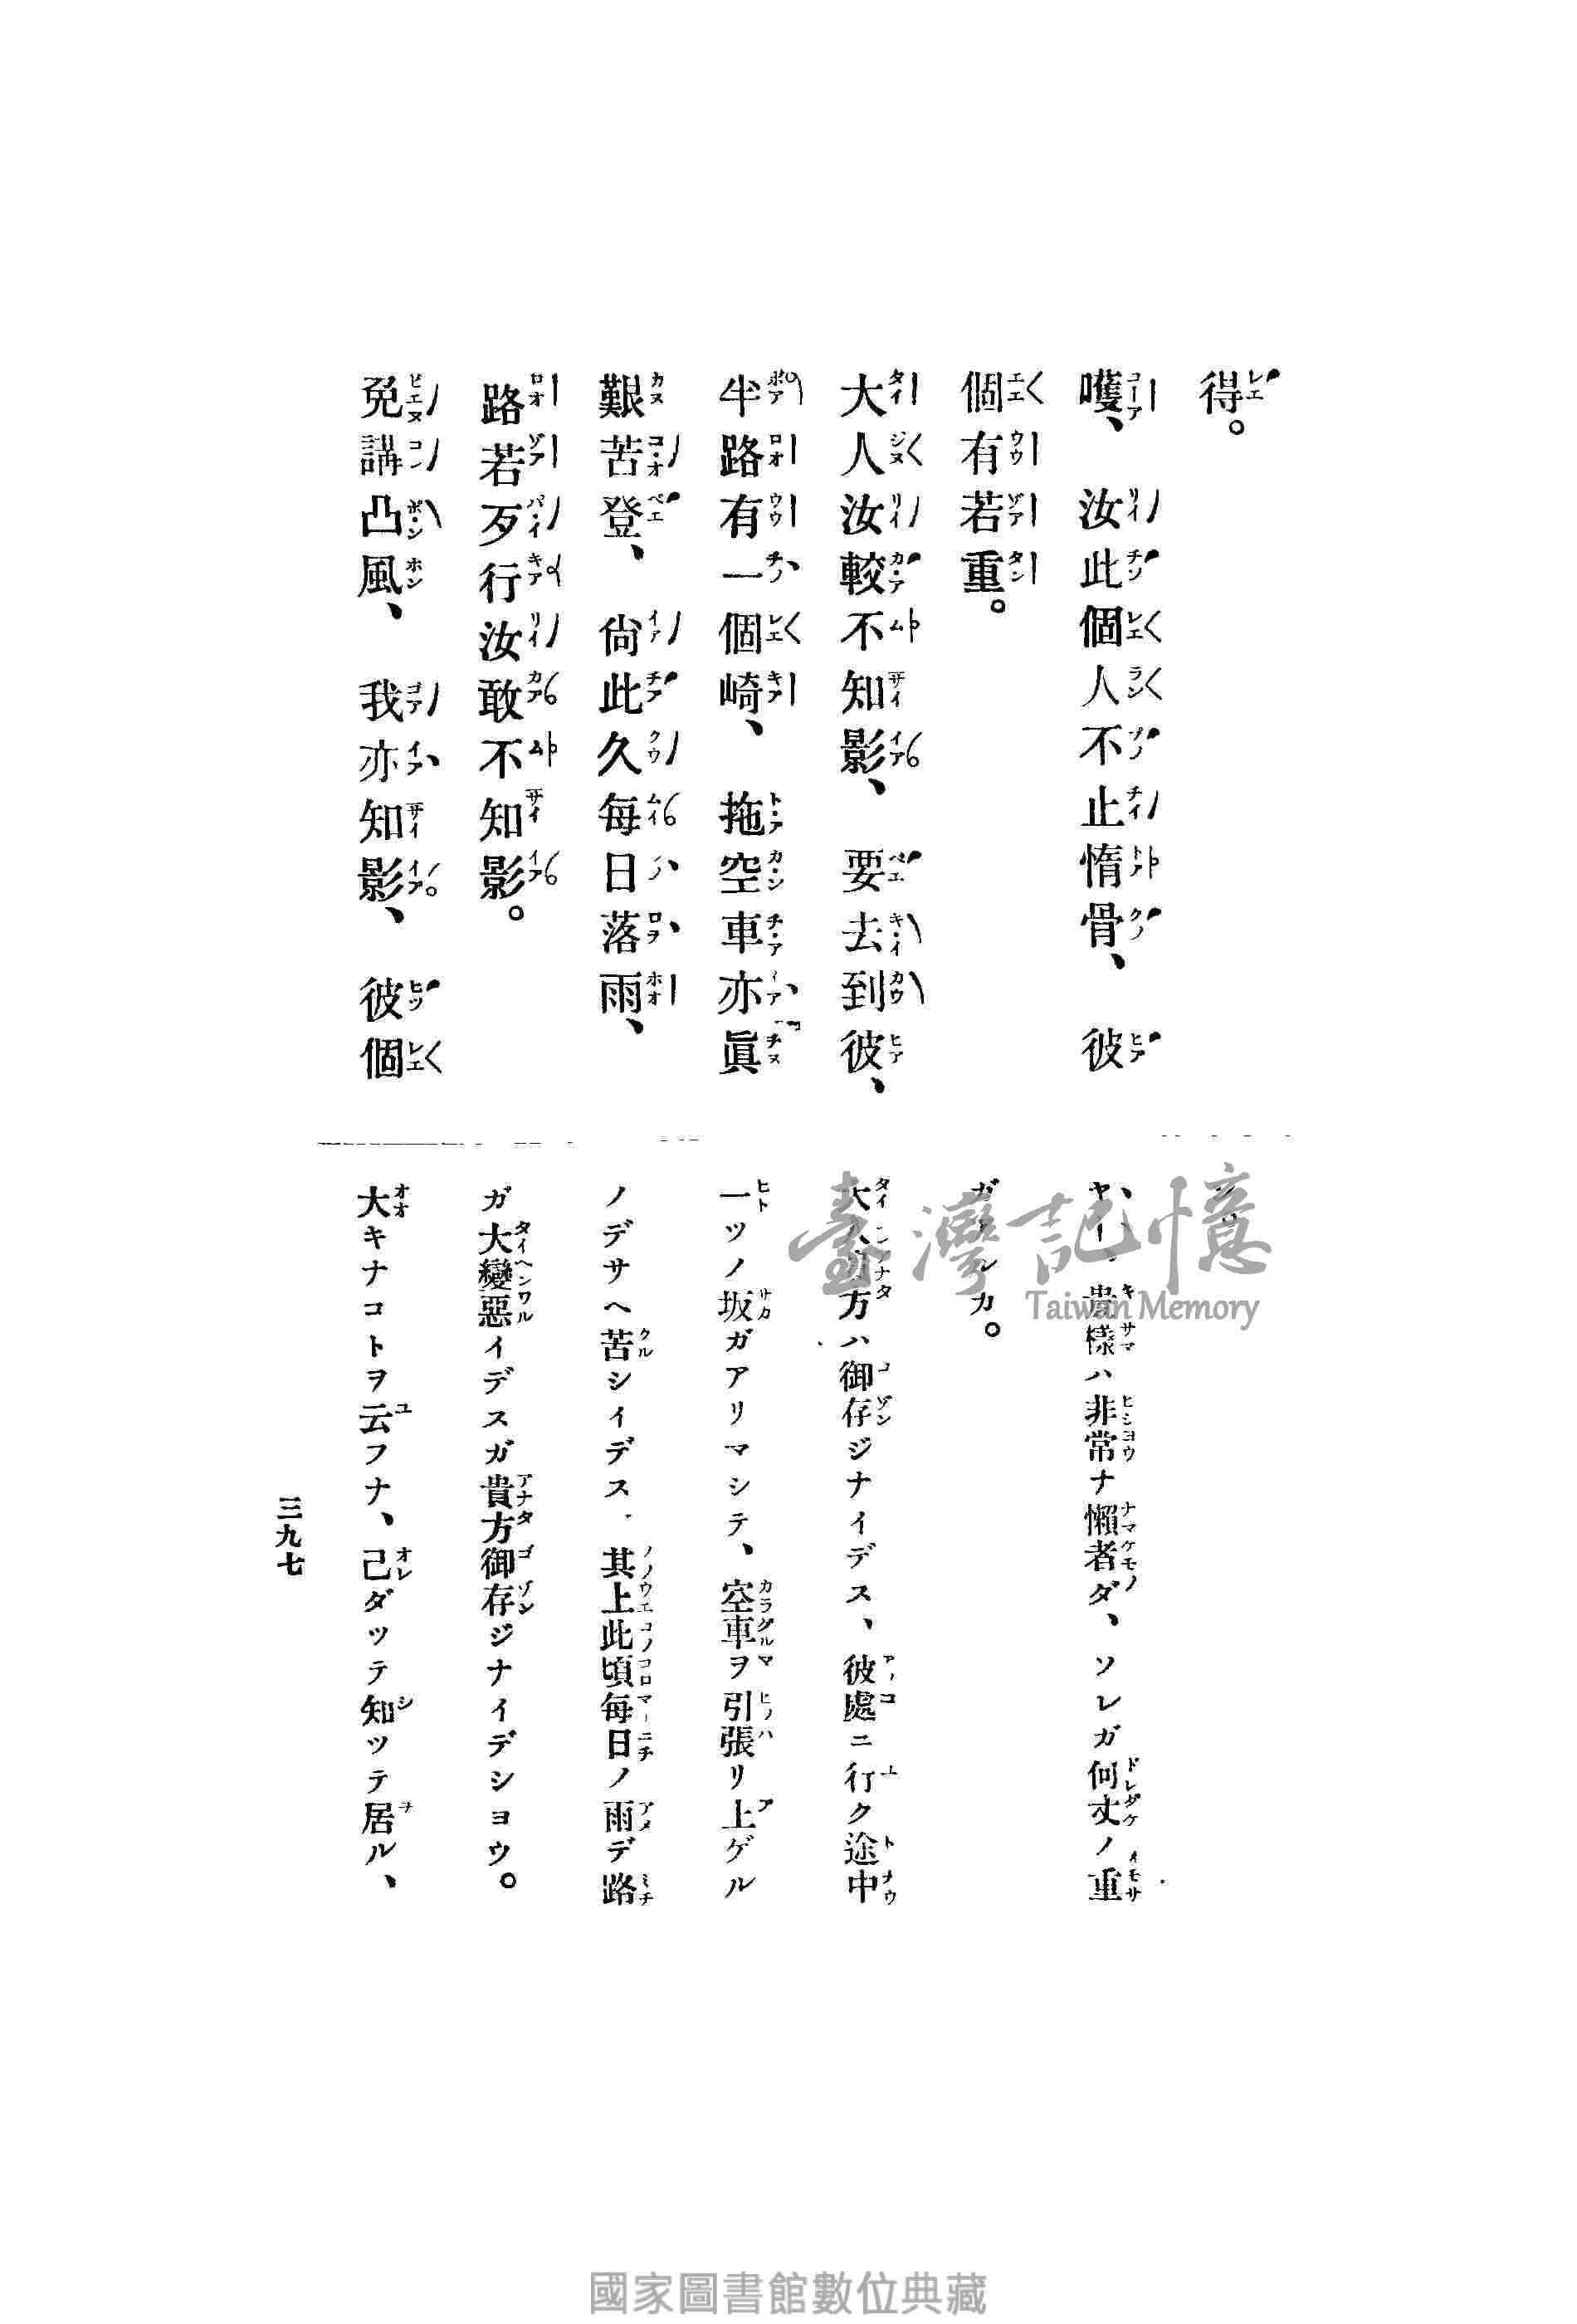 得。
嚄、汝此個人不止惰骨、彼
個有若重。
大人汝較不知影、要去到彼、
半路有一個崎、拖空車亦眞
艱苦登、尙此久每日落雨、
路若歹行汝敢不知影。
免講凸風、我亦知影、彼個
貴樣ハ非常ナ懶者ダ、ソレガ何丈ノ重
カ。
方ハ御存ジナイデス、彼處ニ行ク途中
一ツノ坂ガアリマシテ、空車ヲ引張リ上ゲル
ノデサヘ苦シイデス、其上此頃每日ノ雨デ路
ガ大變惡イデスガ貴方御存ジナイデショウ。
大キナコトヲ云フナ、己ダッテ知ッテ居ル、
三九七
臺灣記憶
Taiwan Memory
國家圖書館數位典藏